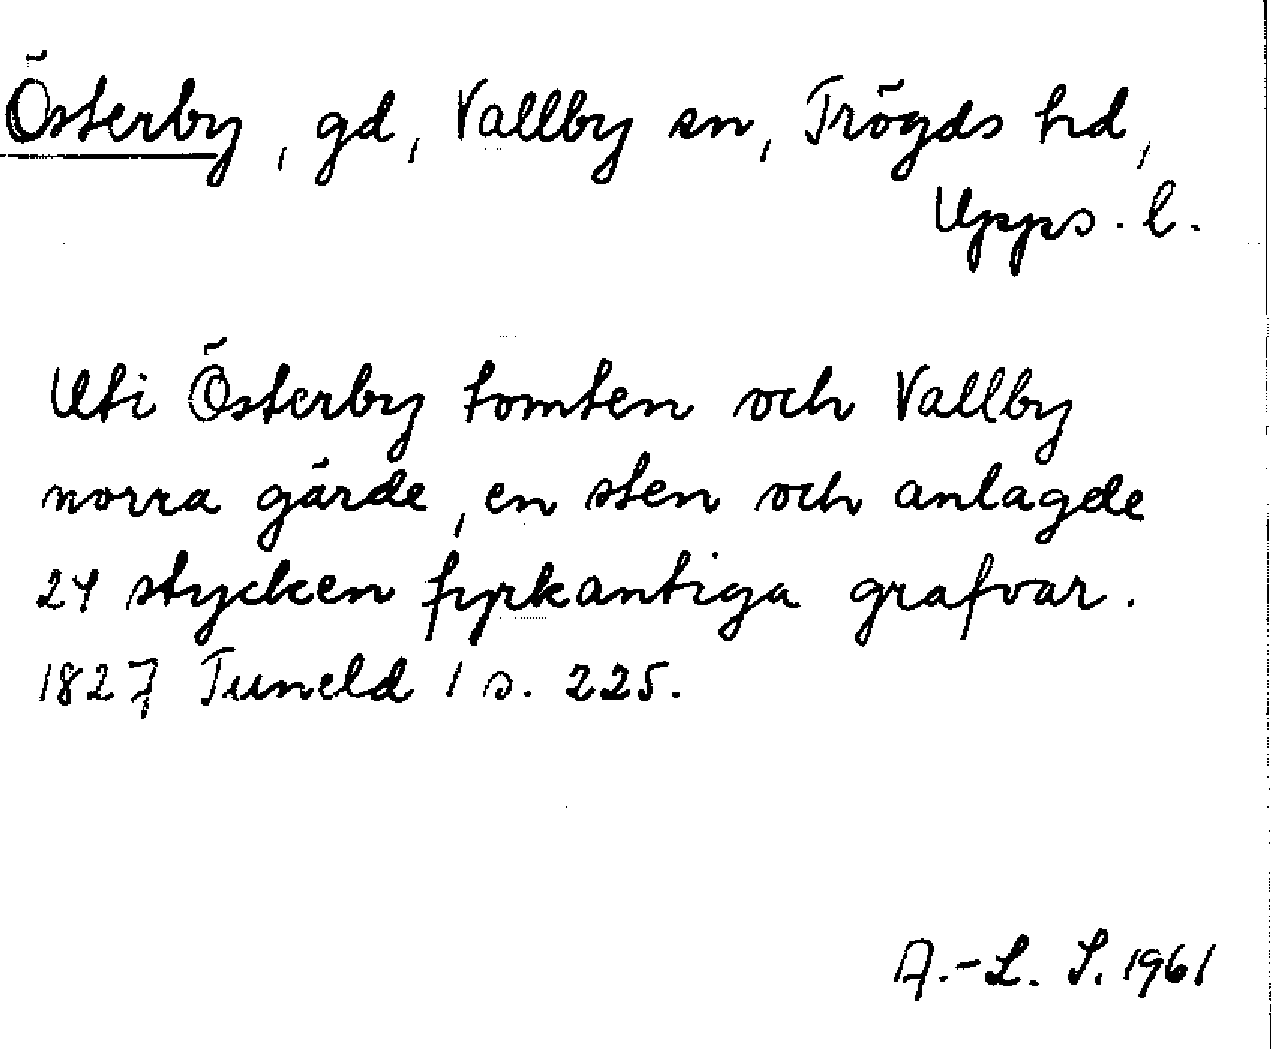 Österby, gd, Vallby sn, Trögds hd,
Upps. l.
Uti Österby tomten och Vallby
norra gärde, en sten och anlagde
24 stycken fyrkantiga grafvar.
1827 Tuneld 1 s. 225.
A.-L. S. 1961